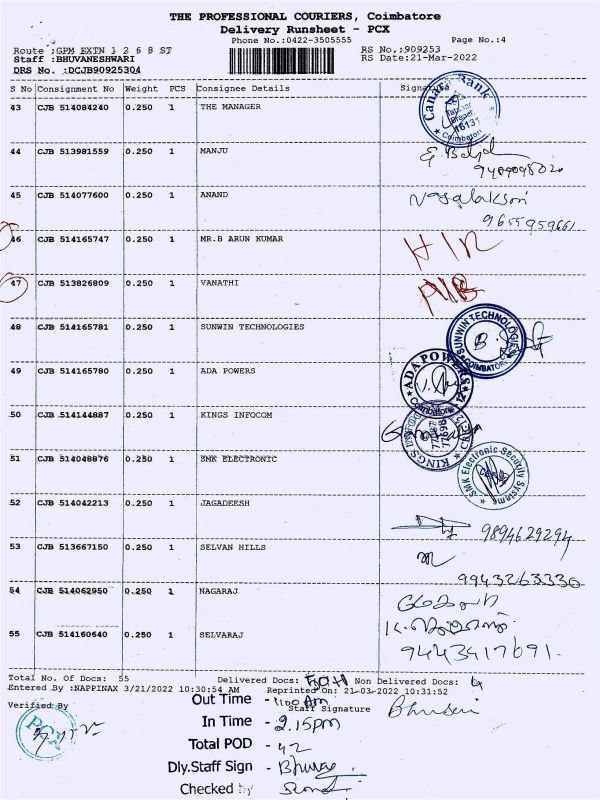 THE PROFESSIONAL COURIERS, Coimbatore
Delivery Runsheet - PCX
Phone No.:0422-3505555 Page No.:4
Route :GPM EXTN 1 2 6 8 ST RS No.:909253
Staff :BHUVANESHWARI RS Date:21-Mar-2022
DRS No. :DCJB909253Q4
S No Consignment No Weight PCS Consignee Details Signature
43 CJB 514084240 0.250 1 THE MANAGER
Canara Bank
16131
Coimbatore
44 CJB 513981559 0.250 1 MANJU
45 CJB 514077600 0.250 1 ANAND
9655959661
46 CJB 514165747 0.250 1 MR.B ARUN KUMAR
47 CJB 513826809 0.250 1 VANATHI
48 CJB 514165781 0.250 1 SUNWIN TECHNOLOGIES
SUNWIN TECHNOLOGIES
COIMBATORE
49 CJB 514165780 0.250 1 ADA POWERS
ADA POWERS
Coimbatore 12
50 CJB 514144887 0.250 1 KINGS INFOCOM
KINGS
51 CJB 514048876 0.250 1 SMK ELECTRONIC
SMK Electronic Security Systems
52 CJB 514042213 0.250 1 JAGADEESH
9894629294
53 CJB 513667150 0.250 1 SELVAN HILLS
9943263330
54 CJB 514062950 0.250 1 NAGARAJ
55 CJB 514160640 0.250 1 SELVARAJ
9443417691.
Total No. Of Docs: 55 Delivered Docs: Non Delivered Docs: 4
Entered By :NAPPINAX 3/21/2022 10:30:54 AM Reprinted On: 21-03-2022 10:31:52
Verified By Staff Signature
Out Time - 11:00 Am
In Time - 2.15pm
Total POD - 42
Dly.Staff Sign -
Checked by